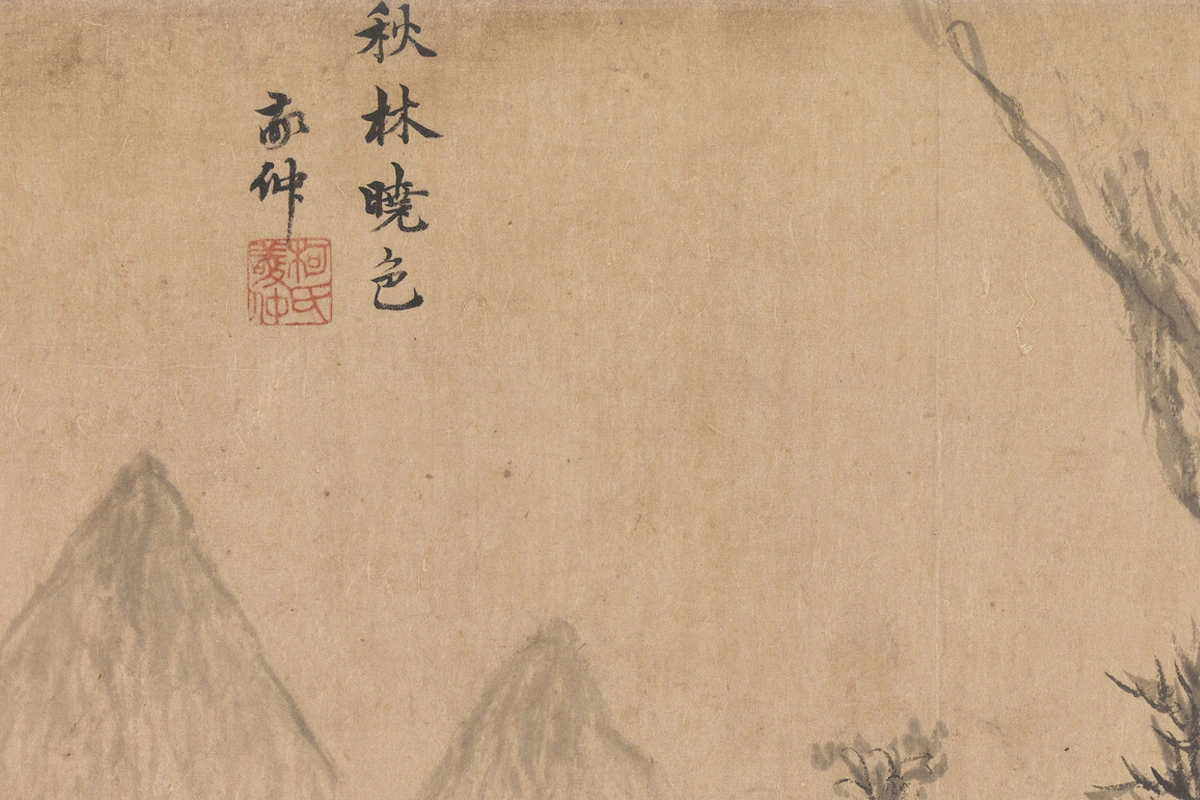 秋林曉色
敬仲
柯氏敬仲